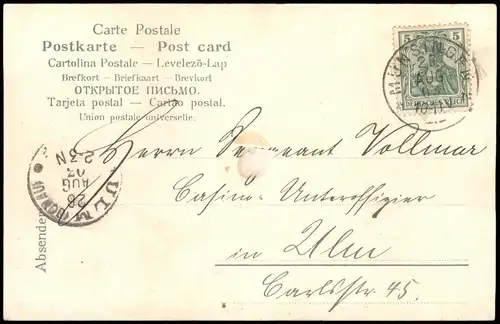 Carte Postale
Postkarte — Post card
Cartolina Postale — Levelező-Lap
Brefkort — Briefkaart — Brevkort
ОТКРЫТОЕ ПИСЬМО.
Tarjeta postal — Cartão postal.
Union postale universelle.
5 5
DEUTSCHES REICH
MÜNSINGEN
AUG
ULM (DONAU)
28
AUG
03
2-3N
Absender
Herrn Sergeant Vollmar
Casino-Unteroffizier
in Ulm
Carlsstr 45.